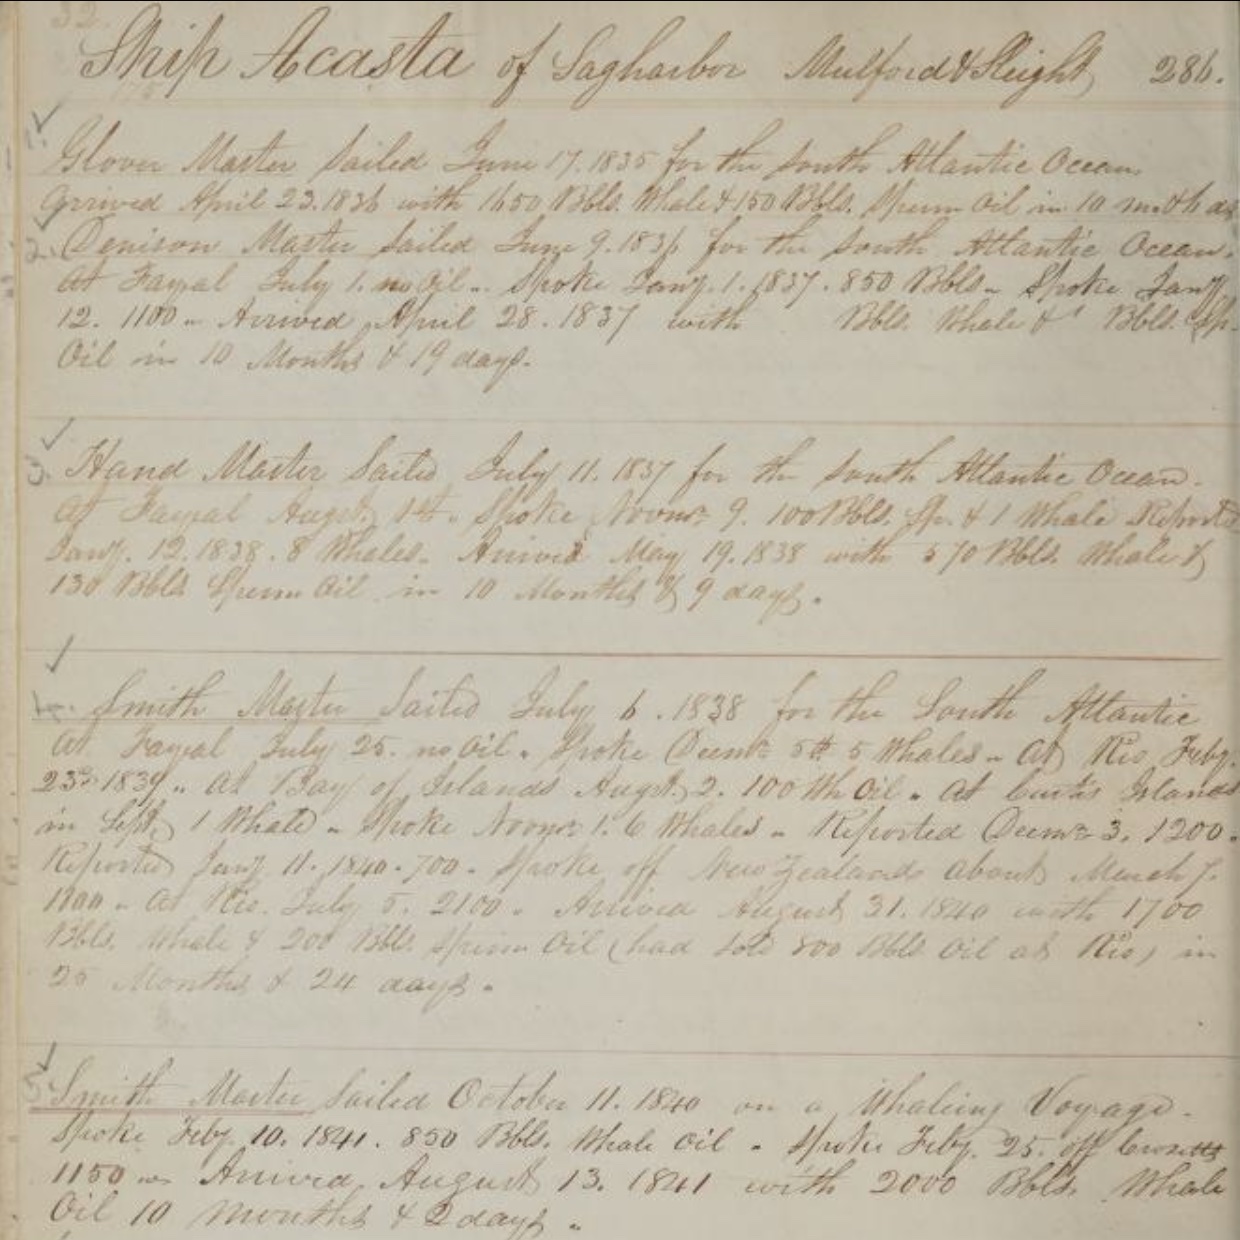 Ship Acasta of Sagharbor Mulford & Sleight 286.
1. Glover Master Sailed June 17. 1835 for the South Atlantic Ocean.
Arrived April 23. 1836 with 1650 Bbls. Whale & 150 Bbls. Sperm Oil in 10 months
2. Denison Master Sailed June 9. 1836 for the South Atlantic Ocean.
At Fayal July 1. no Oil. Spoke Jany. 1. 1837. 850 Bbls. Spoke Jany
12. 1100. Arrived April 28. 1837 with Bbls. Whale & Bbls. Sp.
Oil in 10 Months & 19 days.
3. Hand Master Sailed July 11. 1837 for the South Atlantic Ocean.
At Fayal Augst. Spoke Novmr 9. 100 Bbls. Sp. & 1 Whale Reported
Jany. 12. 1838. 8 Whales. Arrived May 19. 1838 with 570 Bbls. Whale &
130 Bbls Sperm Oil in 10 Months & 9 days.
4. Smith Master Sailed July 6. 1838 for the South Atlantic
At Fayal July 25. no Oil. Spoke Decmr 5th 5 Whales. At Rio Feby.
23d 1839. At Bay of Islands Augst 2. 100 Wh Oil. At Curtis Islands
in Sept. 1 Whale. Spoke Novmr 1. 6 Whales. Reported Decmr 3. 1200.
Reported Jany 11. 1840. 700. Spoke off New Zealand about March 7.
1100. At Rio. July 5. 2100. Arrived August 31. 1840 with 1700
Bbls. Whale & 200 Bbls. Sperm Oil (had sold 800 Bbls Oil at Rio) in
25 Months & 24 days.
5. Smith Master Sailed October 11. 1840 on a Whaling Voyage.
Spoke Feby. 10. 1841. 850 Bbls. Whale Oil. Spoke Feby. 25. off Crozetts
1150. Arrived August 13. 1841 with 2000 Bbls. Whale
Oil 10 months & 2 days.